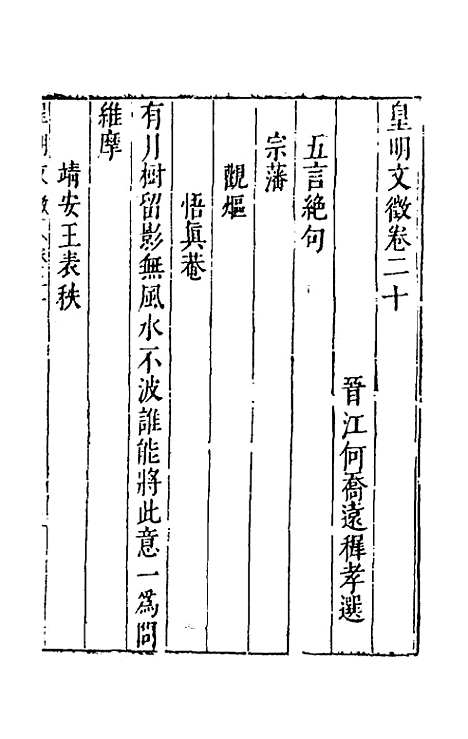 皇明文徵卷二十
晉江何喬遠穉孝選
五言絶句
宗藩
觀熰
悟眞菴
有月樹留影無風水不波誰能將此意一爲問
維摩
靖安王表秩
皇明文徵